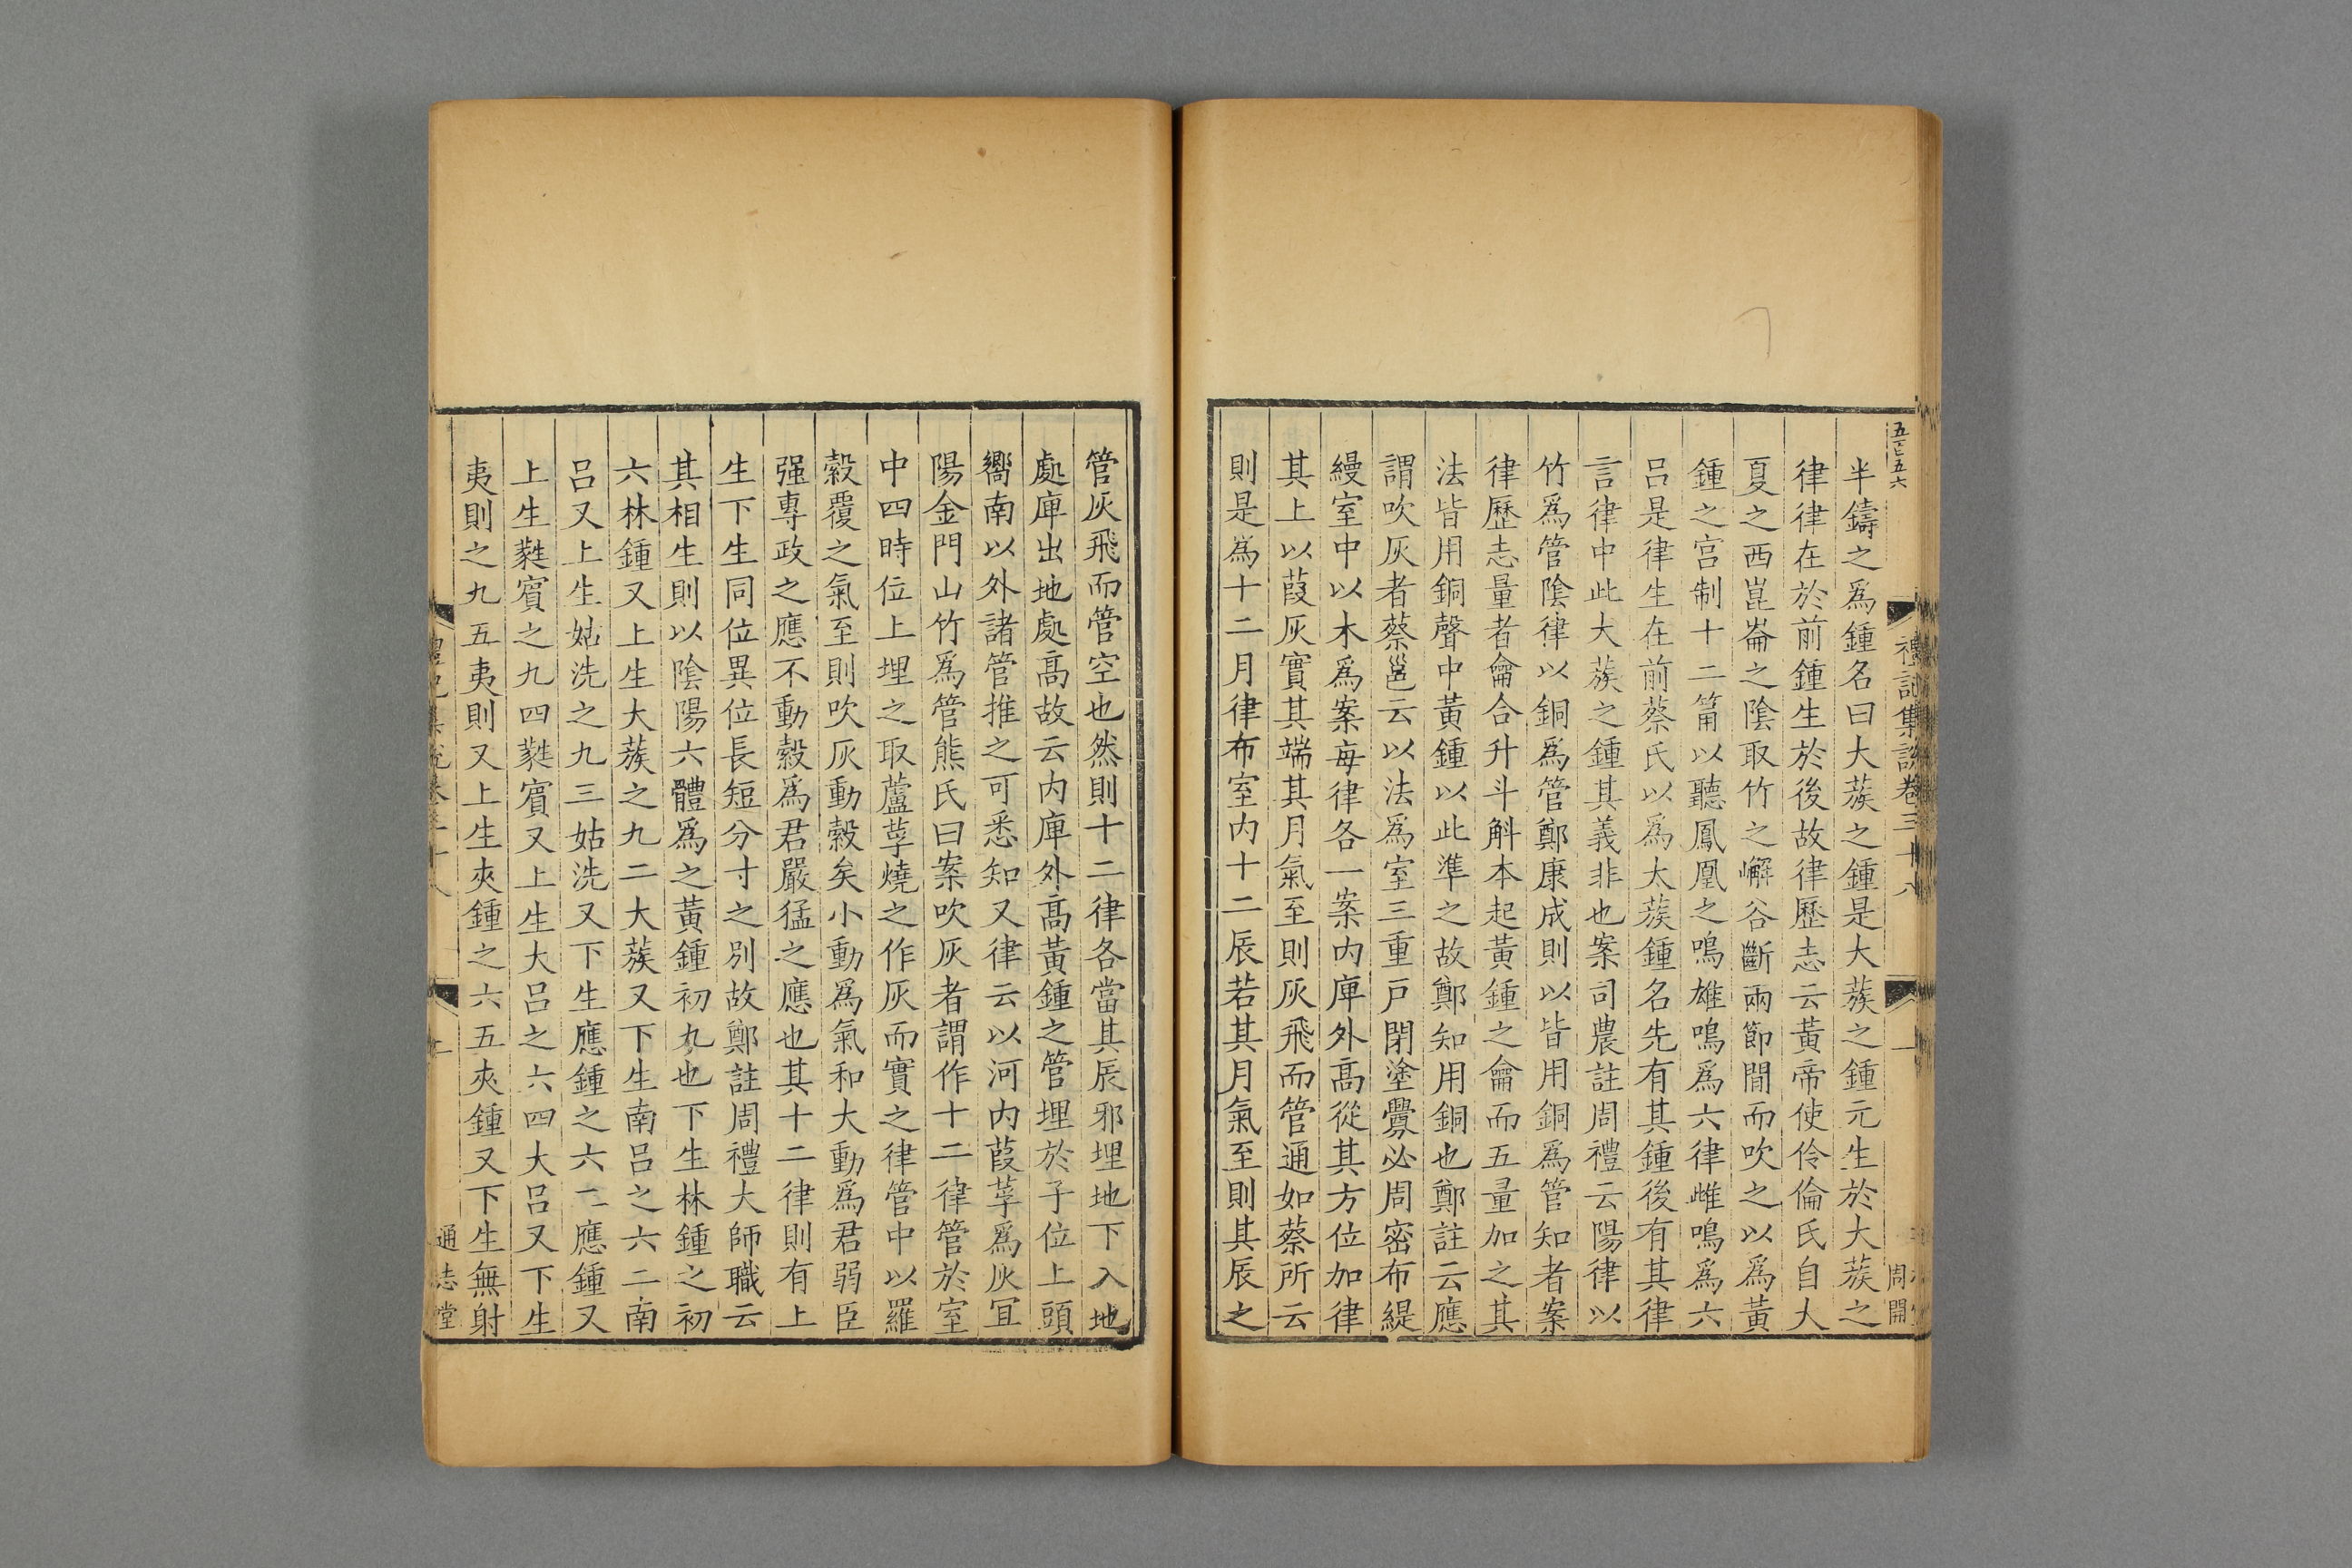 禮記集說卷三十八
一
周開
半鑄之爲鍾名曰大蔟之鍾是大蔟之鍾元生於大蔟之
律律在於前鍾生於後故律歷志云黃帝使伶倫氏自大
夏之西崑崙之陰取竹之嶰谷斷兩節間而吹之以爲黃
鍾之宮制十二篇以聽鳳凰之鳴雄鳴爲六律雌鳴爲六
呂是律生在前蔡氏以爲太蔟鍾名先有其鍾後有其律
言律中此大蔟之鍾其義非也案司農註周禮云陽律以
竹爲管陰律以銅爲管鄭康成則以皆用銅爲管知者案
律歷志量者龠合升斗斛本起黃鍾之龠而五量加之其
法皆用銅聲中黃鍾以此準之故鄭知用銅也鄭註云應
謂吹灰者蔡邕云以法爲室三重戸閉塗釁必周密布緹
縵室中以木爲案每律各一案內庳外高從其方位加律
其上以葭灰實其端其月氣至則灰飛而管通如蔡所云
則是爲十二月律布室內十二辰若其月氣至則其辰之
管灰飛而管空也然則十二律各當其辰邪埋地下入地
處庳出地處高故云內庳外高黃鍾之管埋於子位上頭
嚮南以外諸管推之可悉知又律云以河內葭莩爲灰宜
陽金門山竹爲管熊氏曰案吹灰者謂作十二律管於室
中四時位上埋之取蘆莩燒之作灰而實之律管中以羅
縠覆之氣至則吹灰動縠矣小動爲氣和大動爲君弱臣
强專政之應不動縠爲君嚴猛之應也其十二律則有上
生下生同位異位長短分寸之別故鄭註周禮大師職云
其相生則以陰陽六體爲之黃鍾初九也下生林鍾之初
六林鍾又上生大蔟之九二大蔟又下生南呂之六二南
呂又上生姑洗之九三姑洗又下生應鍾之六二應鍾又
上生蕤賓之九四蕤賓又上生大呂之六四大呂又下生
夷則之九五夷則又上生夾鍾之六五夾鍾又下生無射
通志堂